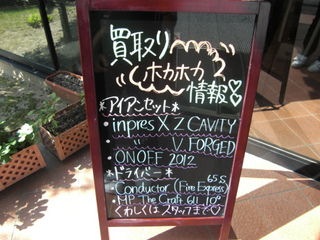 買取り
ホカホカ
情報♡
*アイアンセット*
・inpres X Z CAVITY
・ 〃 V. FORGED
・ONOFF 2012
*ドライバー*
65S
Conductor (Fire Express)
MP The Craft 611 10°
くわしくはスタッフまで♡